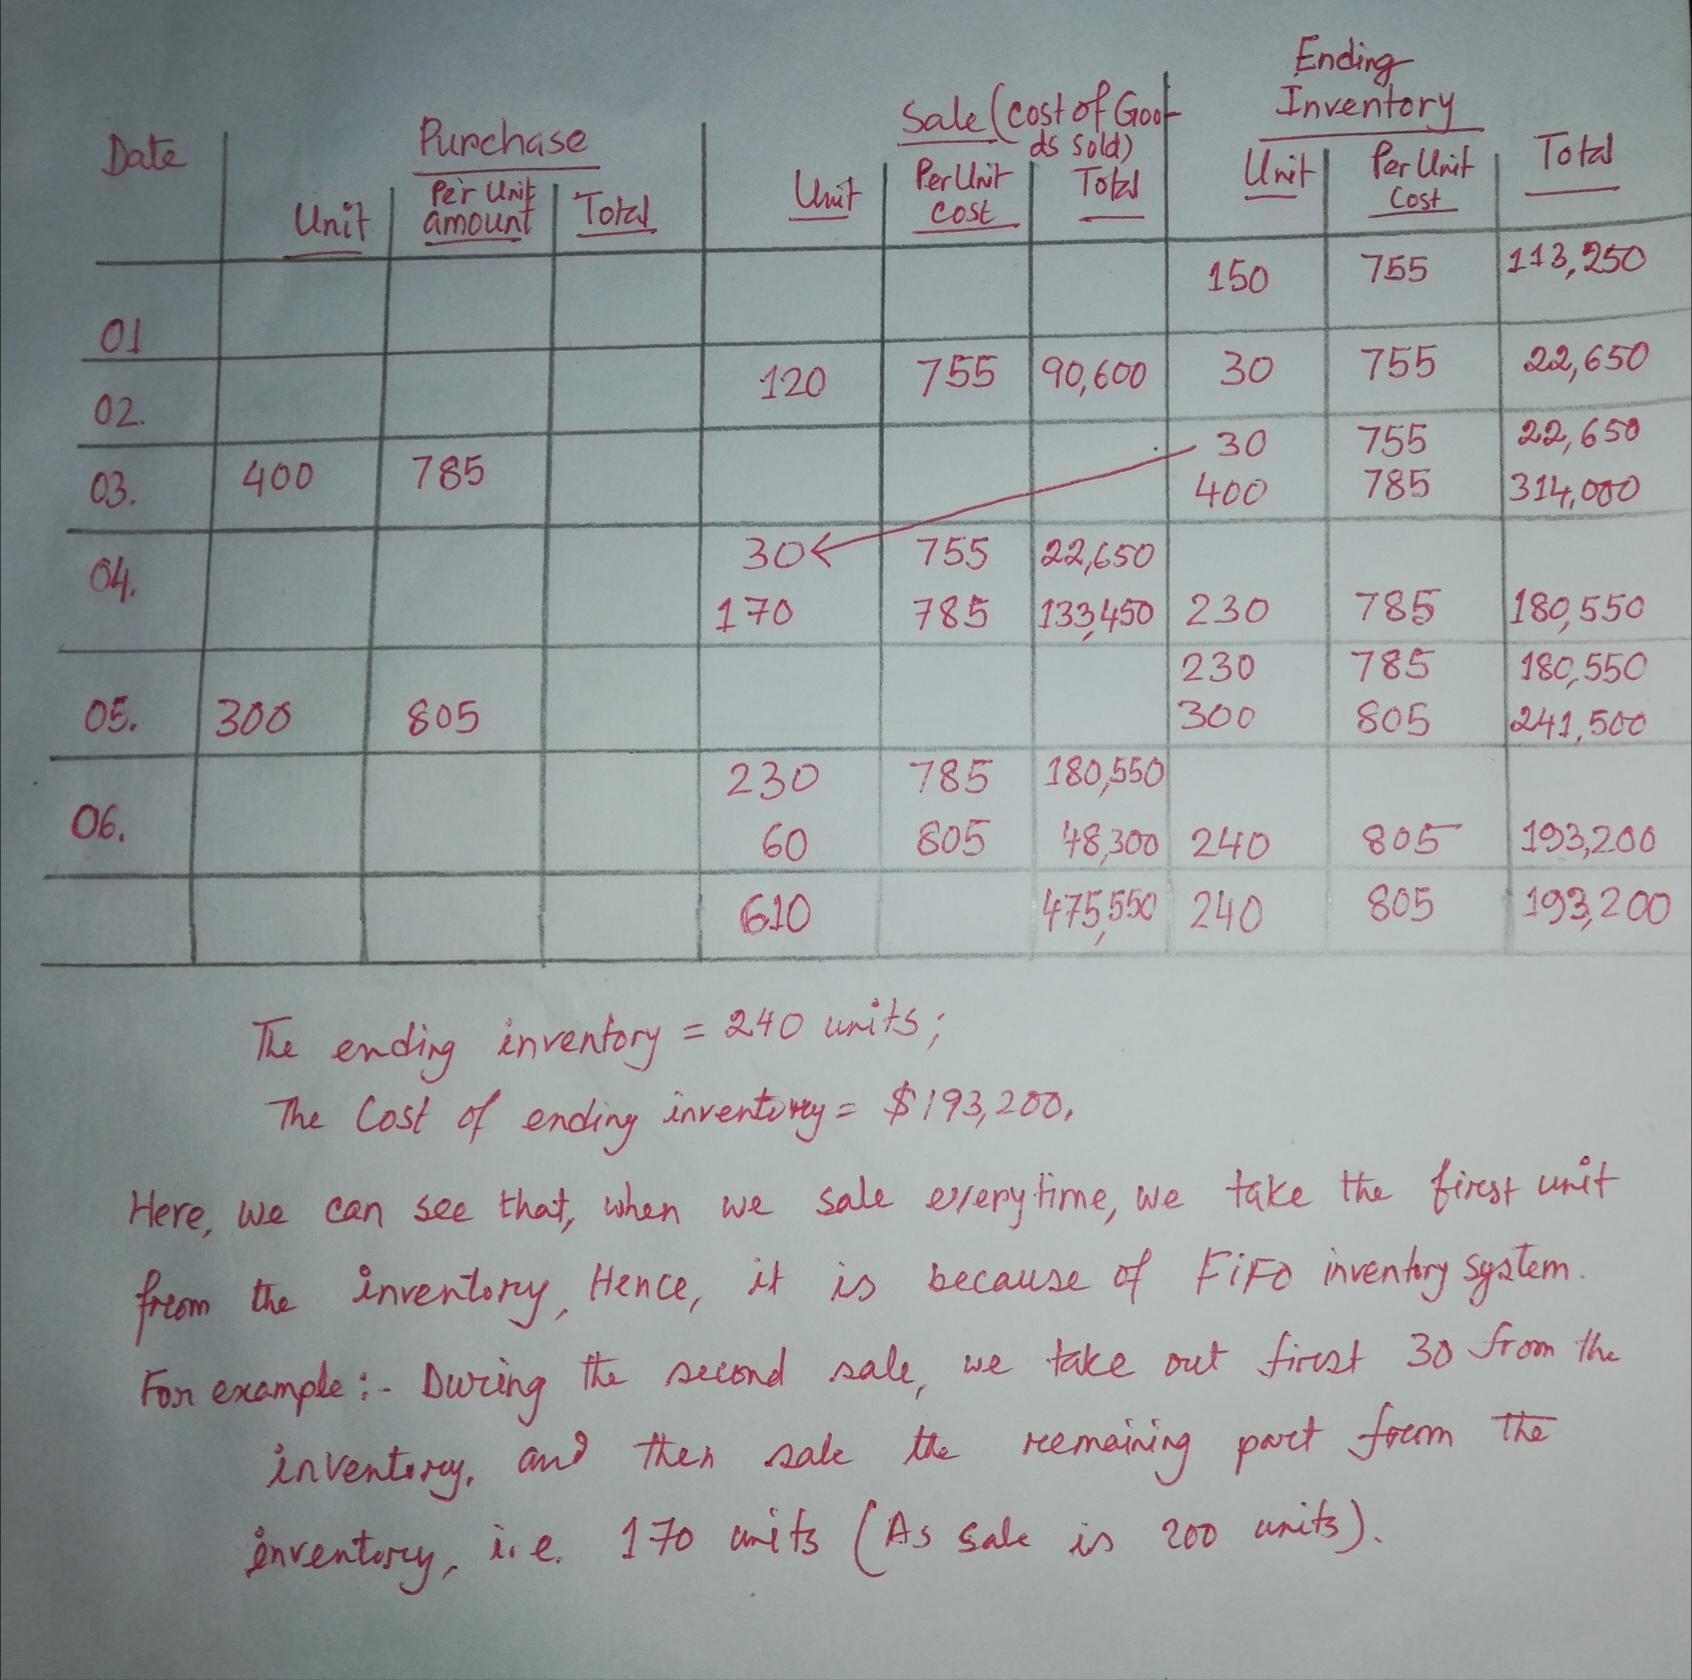 Date | Purchase | Sale (cost of Goods Sold) | Ending Inventory
Unit | Per Unit amount | Total | Unit | Per Unit cost | Total | Unit | Per Unit Cost | Total
01 | 150 | 755 | 113,250
02. | 120 | 755 | 90,600 | 30 | 755 | 22,650
03. | 400 | 785 | 30 | 755 | 22,650
400 | 785 | 314,000
04. | 30 | 755 | 22,650
170 | 785 | 133,450 | 230 | 785 | 180,550
05. | 300 | 805 | 230 | 785 | 180,550
300 | 805 | 241,500
06. | 230 | 785 | 180,550
60 | 805 | 48,300 | 240 | 805 | 193,200
610 | 475,550 | 240 | 805 | 193,200
The ending inventory = 240 units;
The Cost of ending inventory = $193,200.
Here, we can see that, when we sale everytime, we take the first unit
from the inventory, Hence, it is because of FiFo inventory system.
For example :- During the second sale, we take out first 30 from the
inventory, and then sale the remaining part from the
inventory, i.e. 170 units (As sale is 200 units).